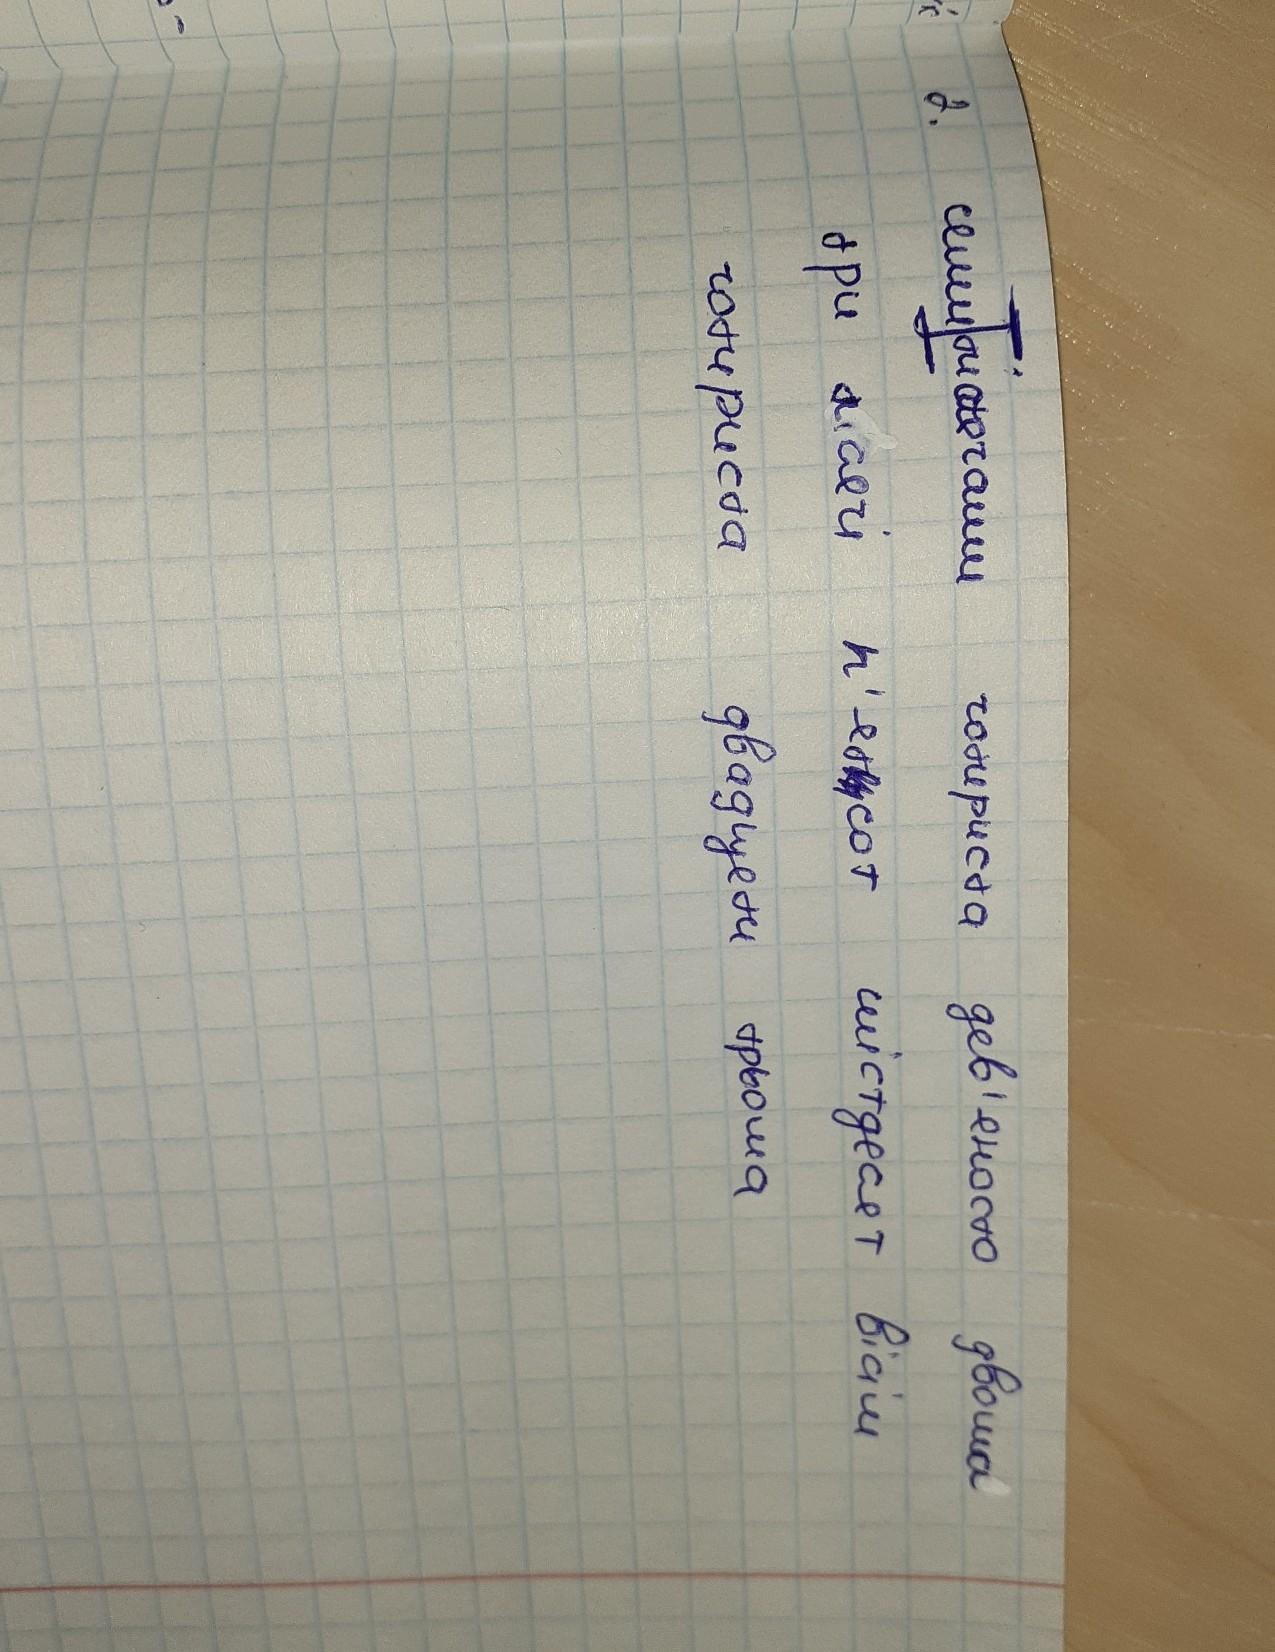 2. семи тисячами чотириста дев'яносто двома
три тисячі п'ятсот шістдесят вісім
чотириста двадцяти трьома